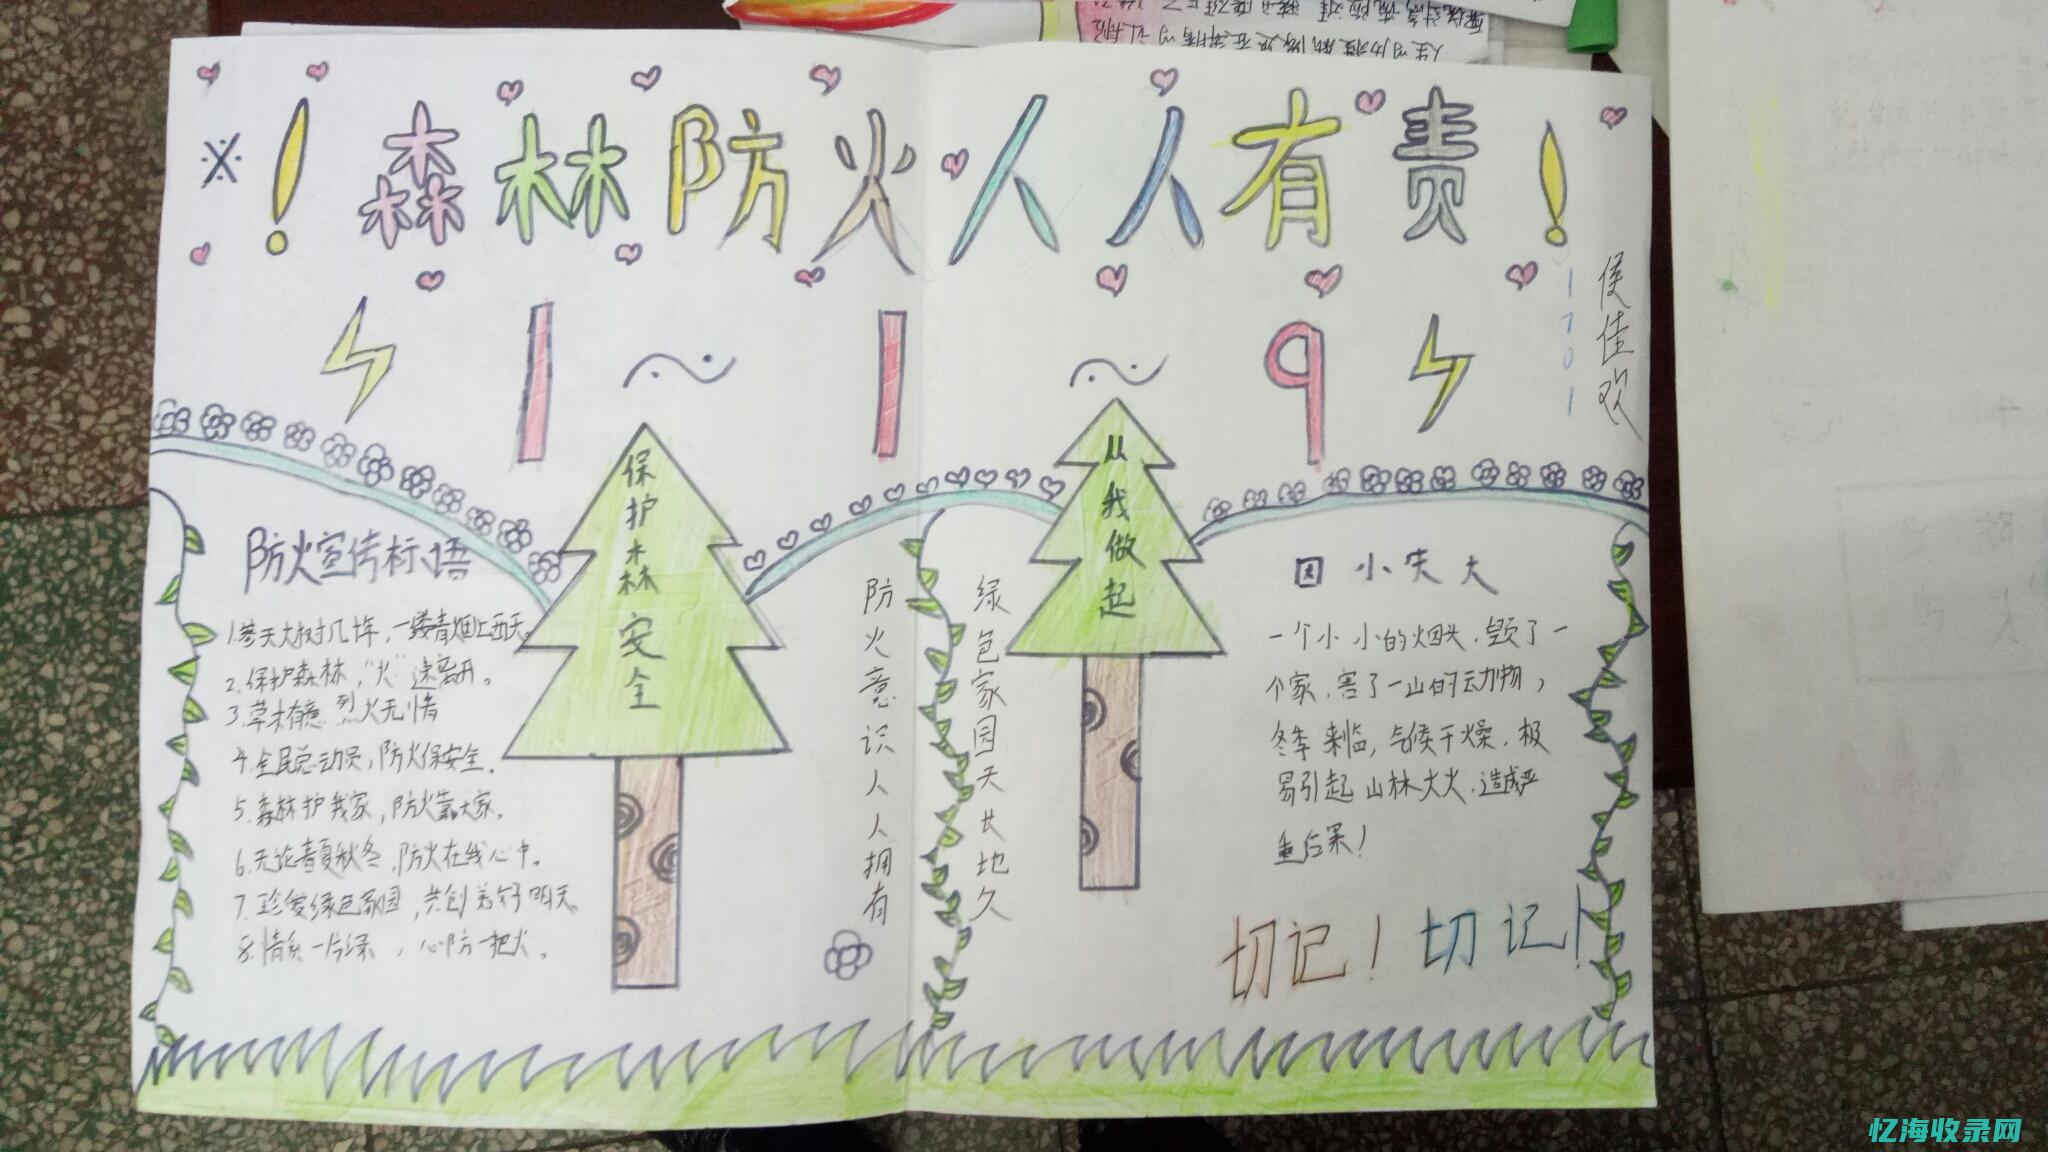 ※！森林防火人人有责！
1～1～9
1701
侯佳欢
保护森林安全
从我做起
防火宣传标语
1.参天大树几十年，一缕青烟上西天。
2.保护森林，“火”速离开。
3.草木有意 烈火无情
4.全民总动员，防火保安全。
5.森林护我家，防火靠大家。
6.无论春夏秋冬，防火在我心中。
7.珍爱绿色家园，共创美好明天。
8.情系一片绿，心防一把火。
防火意识人人拥有
绿色家园天长地久
因小失大
一个小小的烟头，毁了一
个家，害了一山的动物，
冬季来临，气候干燥，极
易引起山林大火，造成严
重后果！
切记！切记！
忆海收录网